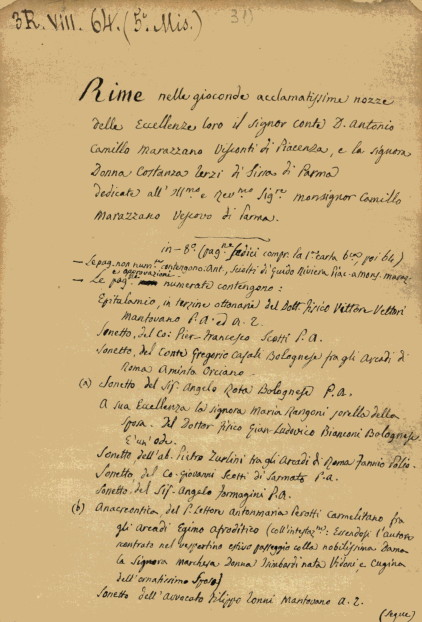 3R. VIII. 64. (5° Mis.) 31)
Rime nelle gioconde acclamatissime nozze
delle Eccellenze loro il signor conte D. Antonio
Camillo Marazzano Visconti di Piacenza, e la signora
Donna Costanza Terzi di Sissa di Parma
dedicate all' Ill.mo e Rev.mo Sig.re monsignor Camillo
Marazzano Vescovo di Parma.
in-8° (pag.ne sedici compr. la 1a carta bca, poi 64)
— Le pag. non num.te contengono. Ant. Scolti di Guido Riviera Piac. a Mons. Maraz.
e approvazioni
— Le pag.ne numerate contengono:
Epitalamio, in terzine ottonarie del Dott. fisico Vettore Vettori
Mantovano P.A. ed A.T.
Sonetto, del Co: Pier-Francesco Scotti P.A.
Sonetto, del Conte Gregorio Casali Bolognese fra gli Arcadi di
Roma Aminto Orciano.
(a) Sonetto del Sig. Angelo Rota Bolognese P.A.
A sua Eccellenza la signora Maria Rangoni sorella della
sposa. Del Dottor fisico Gian-Ludovico Bianconi Bolognese.
È un' ode.
Sonetto dell'ab. Pietro Zurlini tra gli Arcadi di Roma
Sonetto, del Co. Giovanni Scotti di Sarmato P.A.
Sonetto, del Sig. Angelo Formagini P.A.
(b) Anacreontica, del P. Lettore Antonmaria Perotti Carmelitano fra
gli Arcadi Egimo Afroditico (coll'intestaz.ne: Essendosi l'autore
incontrato nel vespertino estivo passeggio colla nobilissima Dama
la Signora Marchesa Donna nata Vidoni e cugina
dell'ornatissimo Sposo)
Sonetto dell'Avvocato Filippo Tonni Mantovano A.T.
(segue)